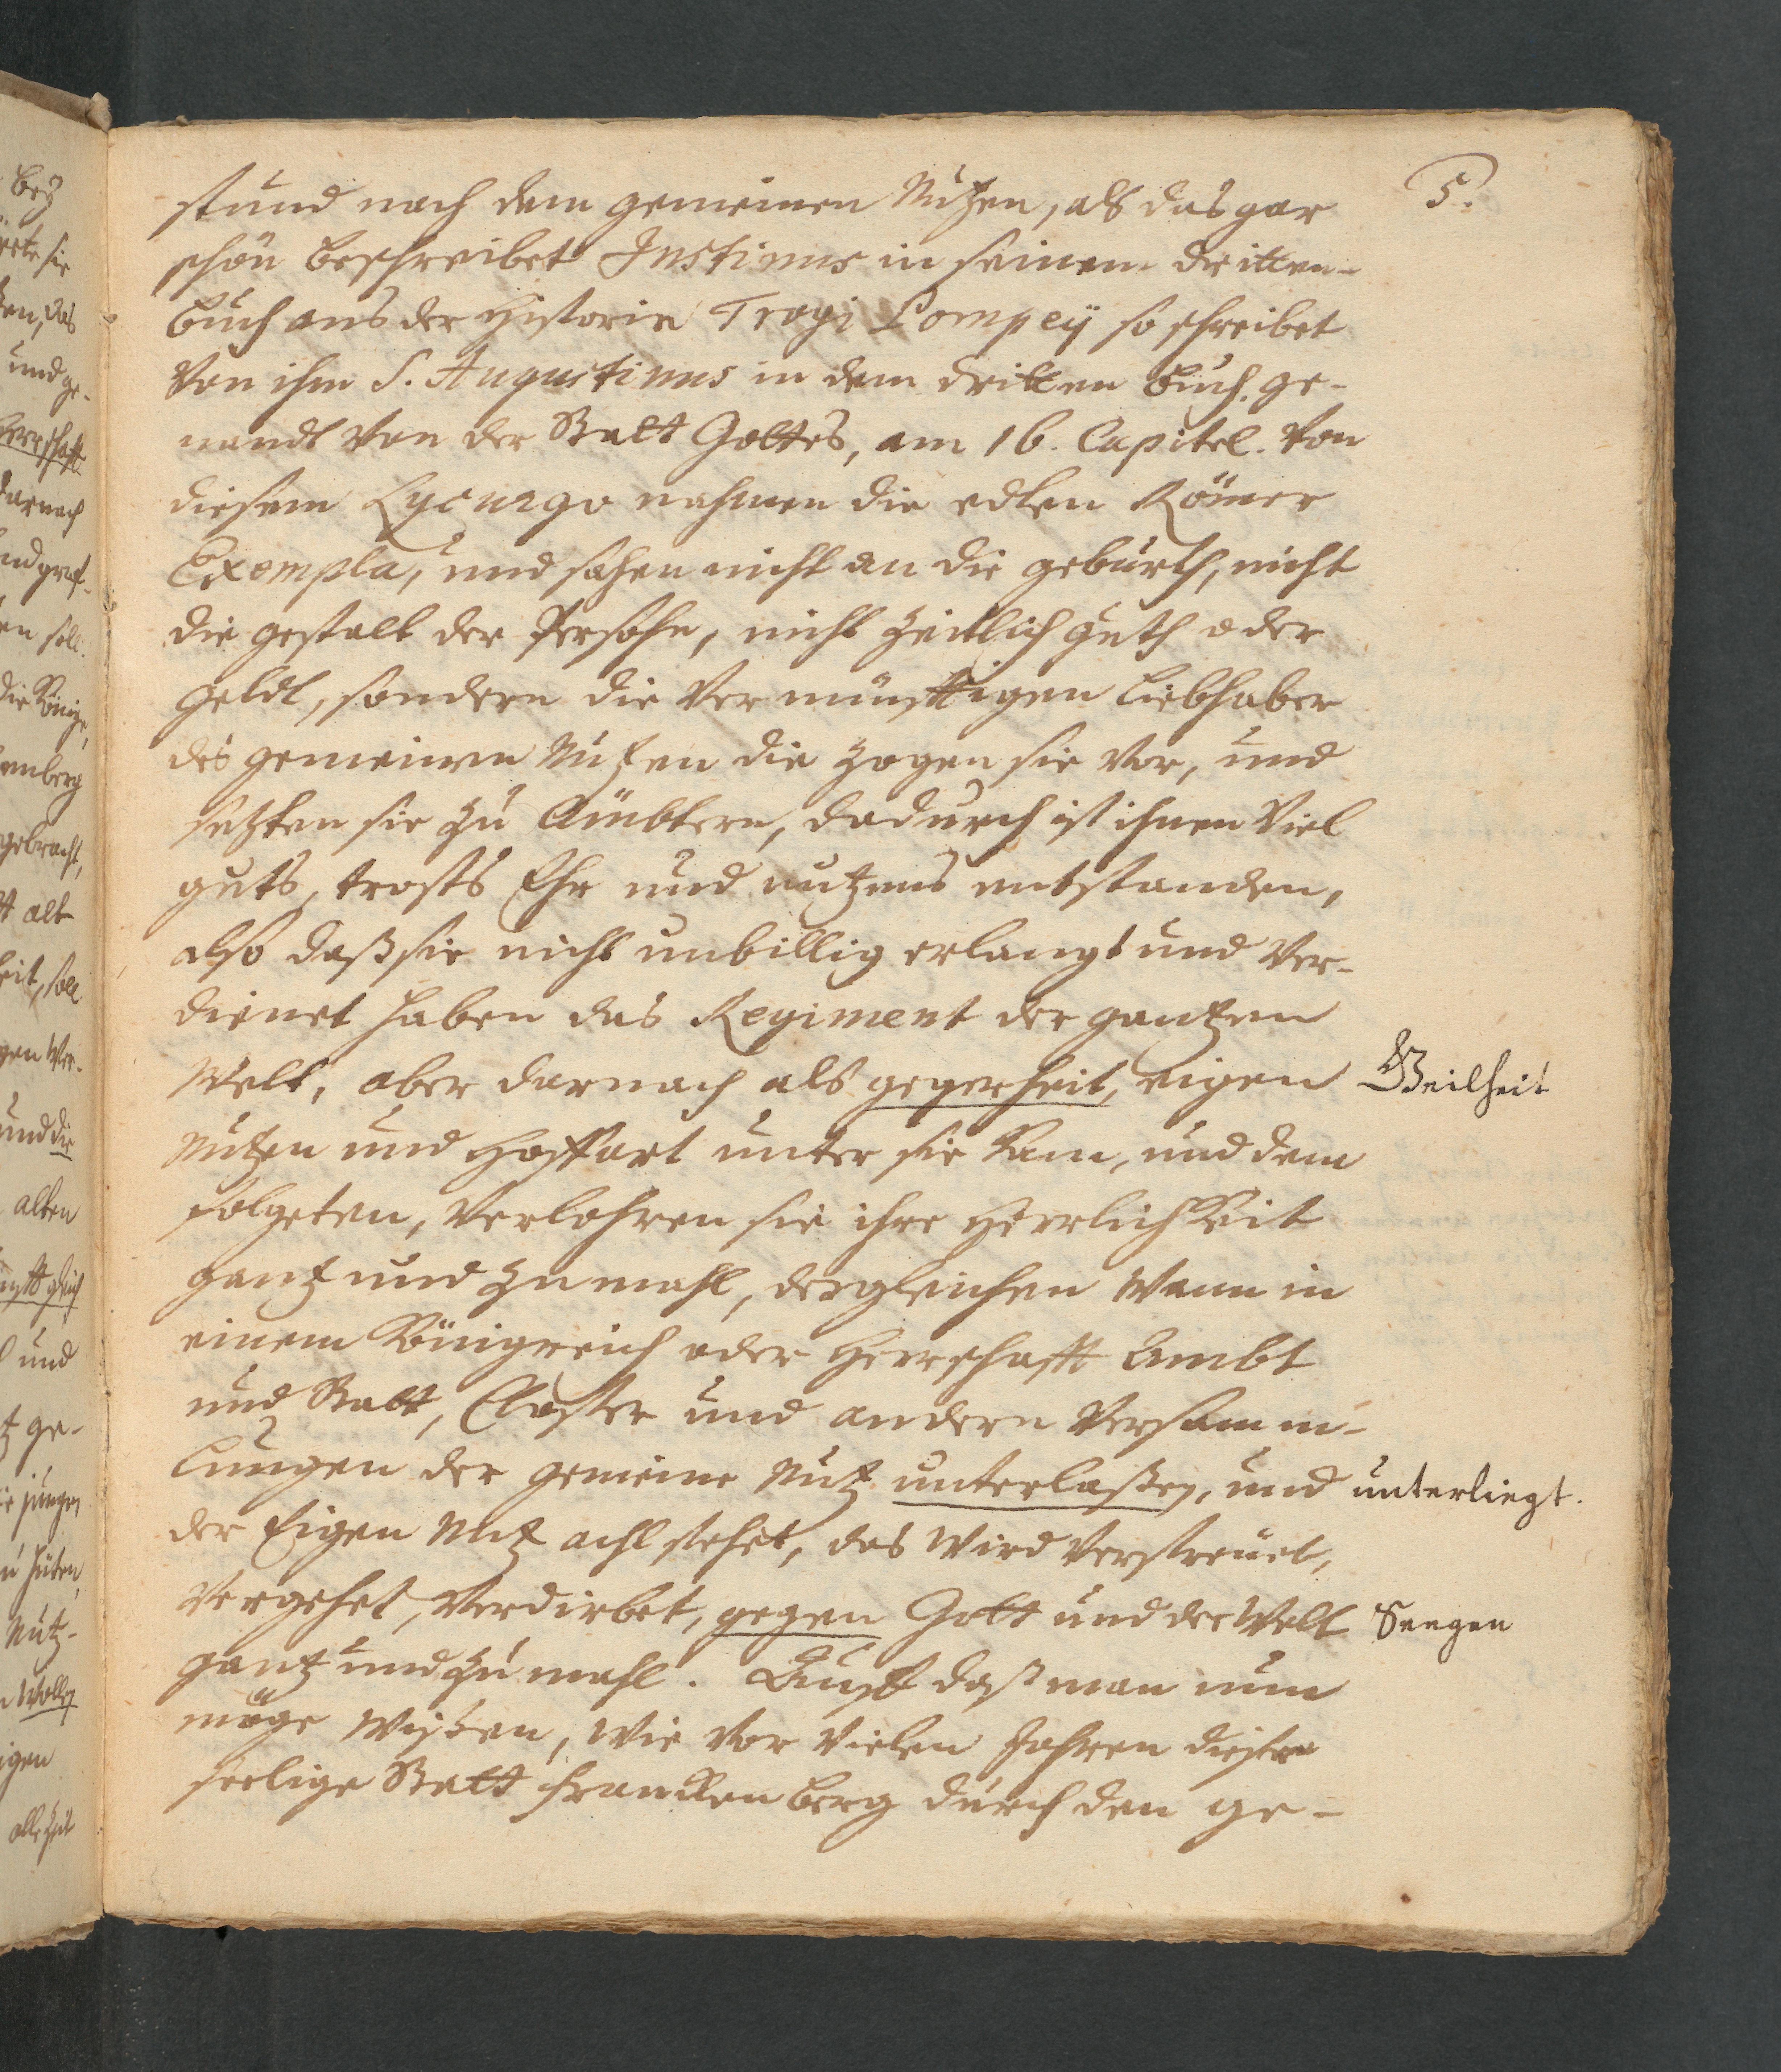 5.
stund nach dem gemeinen Nutzen, als das gar
schön beschreibet Justinus in seinem dritten
buch aus der Historien Trogi Pompeij so schreibet
von ihm S. Augustinus in dem dritten buch, ge-
nandt von der Statt Gottes, am 16. Capitel. Von
diesem Lycurgo nahmen die edlen Römer
Exempla, und sahen nicht an die geburth, nicht
die gestalt der Persohn, nicht zeitlich guth oder
geldt, sondern die vernünfftigen Liebhaber
des gemeinen Nutzen die zogen sie vor, und
setzten sie zu Ämbtern, dadurch ist ihnen viel
guts, trosts Ehr und nutzens entstanden,
also daß sie nicht unbillig erlangt und ver-
dienet haben das Regiment der gantzen
Welt, aber darnach als gegerheit, eigen Geilheit
Nutzen und Hoffart unter sie kam, und dem
folgeten, verlohren sie ihre Herrlichkeit
gantz und zumahl, dergleichen wann in
einem Königreich oder Herrschafft Ambt
und Statt, Closter und andern Versamm-
lungen der gemeine Nutz unterlaßen, und unterliegt.
der Eigen Nutz achl stehet, das wird verstreuet,
vergehet, verdirbet, gegen Gott und der Welt Seegen
gantz und zu mahl. Auff daß man nun
möge wißen, wie vor vielen Jahren diese
seelige Statt Franckenberg durch den ge-
bey
und ge-
Herrschafft
darnach
en soll.
die Könige,
enberg
gebracht,
alt
und die
alten
und
ge-
Nutz-
wollen
igen
alle Zeit